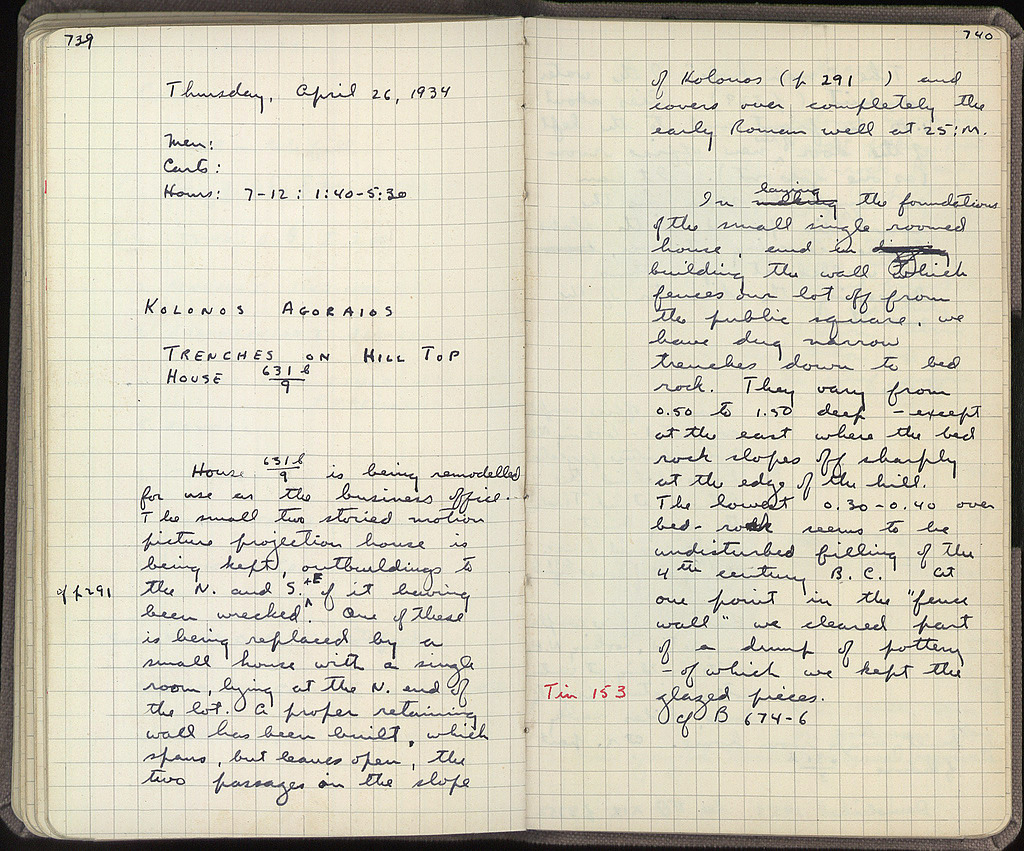 739
Thursday, April 26, 1934
Men:
Carts:
Hours: 7-12 : 1:40-5:30
KOLONOS AGORAIOS
TRENCHES ON HILL TOP
HOUSE 631b/9
House 631b/9 is being remodelled
for use as the business office.
The small two storied motion
picture projection house is
being kept, outbuildings to
cf p291 the N. and S. +E of it having
been wrecked. One of these
is being replaced by a
small house with a single
room, lying at the N. end of
the lot. A proper retaining
wall has been built, which
spans, but leaves open, the
two passages in the slope
740
of Kolonos (p 291 ) and
covers over completely the
early Roman well at 25:M.
laying
In making the foundations
of the small single roomed
house, and in
building the wall which
fences our lot off from
the public square, we
have dug narrow
trenches down to bed
rock. They vary from
0.50 to 1.50 deep - except
at the east where the bed
rock slopes off sharply
at the edge of the hill.
The lowest 0.30-0.40 over
bed-rock seems to be
undisturbed filling of the
4th century B.C. At
one point in the "fence
wall" we cleared part
of a dump of pottery
- of which we kept the
Tin 153 glazed pieces.
cf B 674-6